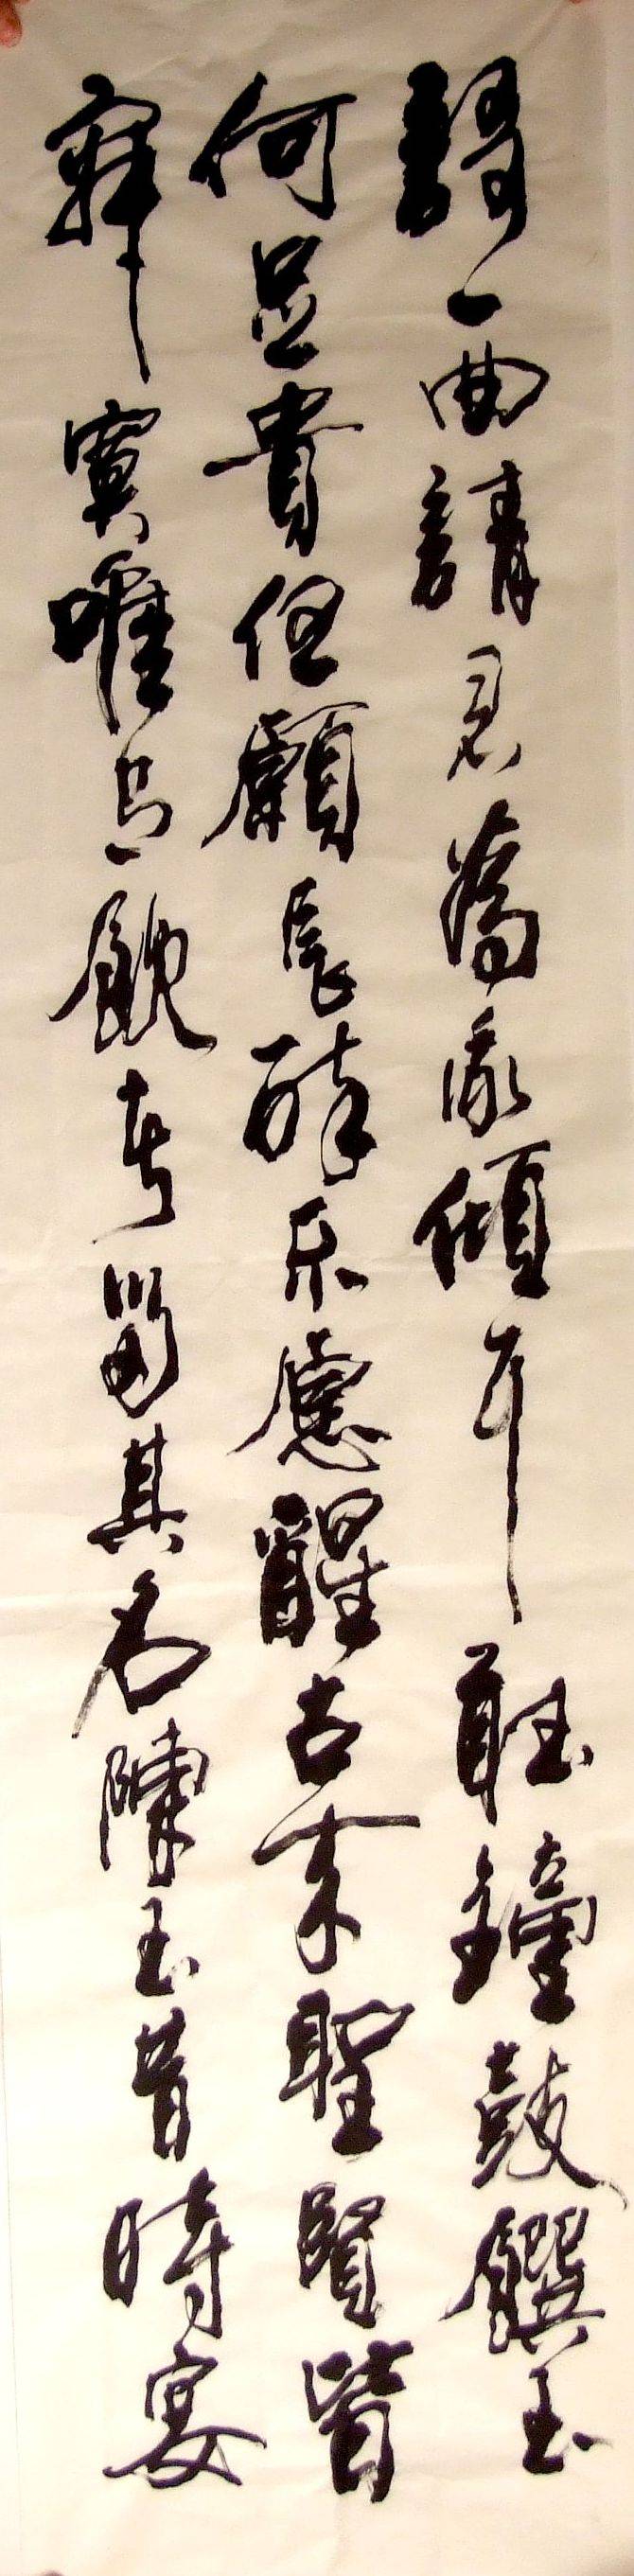 謌一曲請君為我傾耳聽鐘鼓饌玉
何足貴但願長醉不愿醒古來聖賢皆
寂寞唯有飲者留其名陳王昔時宴